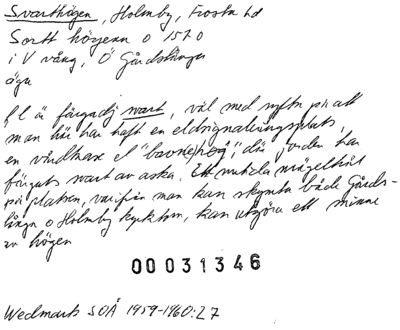 Svarthögen, Holmby, Frosta hd
Sortt högenn o 1570
i V vång, Ö Gårdstånga
äga
fl är färgadj svart, väl med syftn på att
man här har haft en eldsignaleringsplats,
en vårdkase el "bavnehög", där jorden har
färgats svart av aska. Ett nutida märgelhål
på platsen, varifrån man kan skymta både Gårds-
tånga o Holmby kyrktorn, kan utgöra ett minne
av högen
00031346
Wedmark SOÅ 1959-1960:27